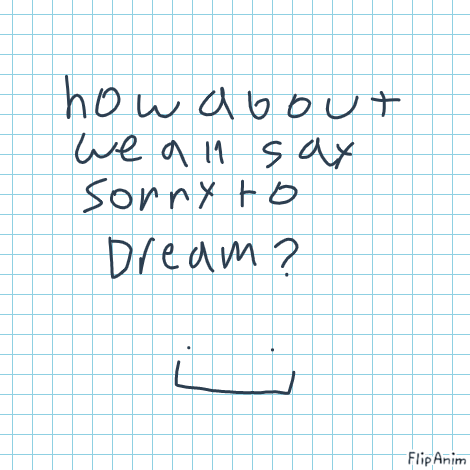 how about
we all say
sorry to
Dream?
FlipAnim